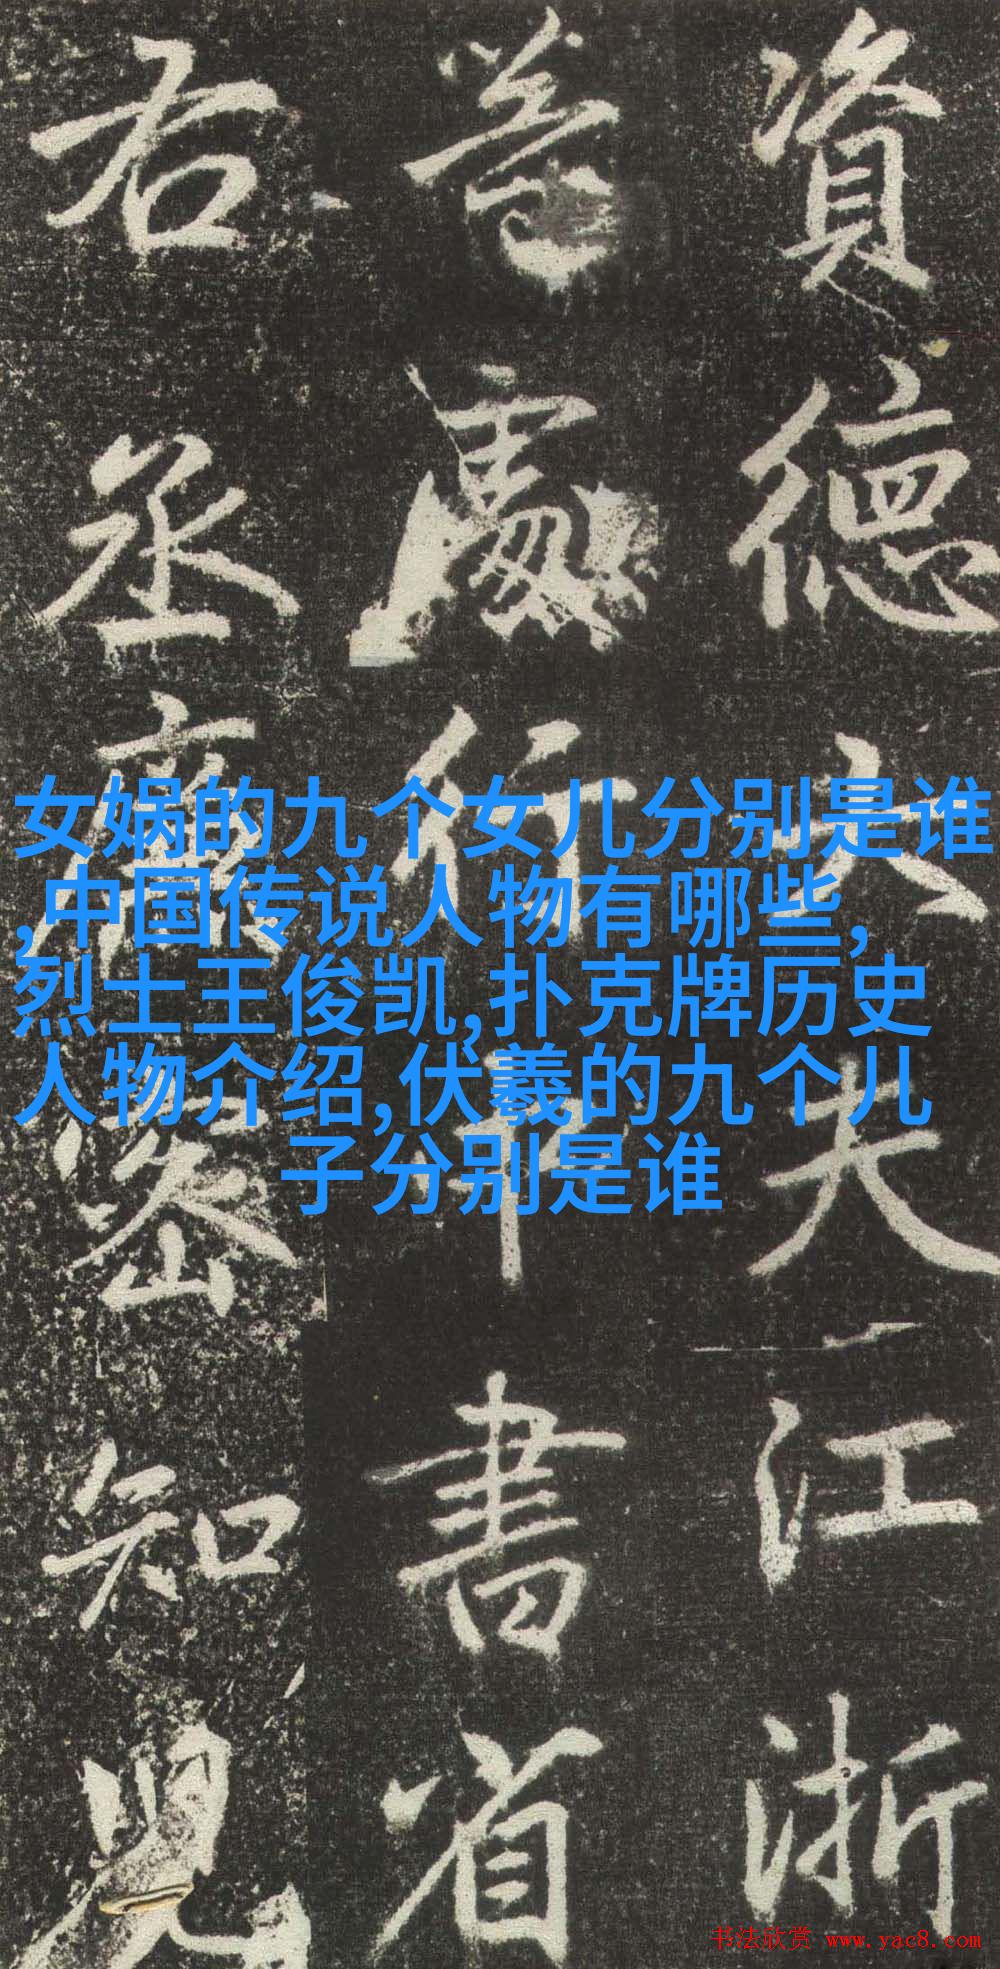 資德大夫江浙
等處行中書省
右丞廉密知兒
女娲的九个女儿分别是谁
,中国传说人物有哪些,
烈士王俊凯,扑克牌历史
人物介绍,伏羲的九个儿
子分别是谁
书法欣赏 www.yac8.com